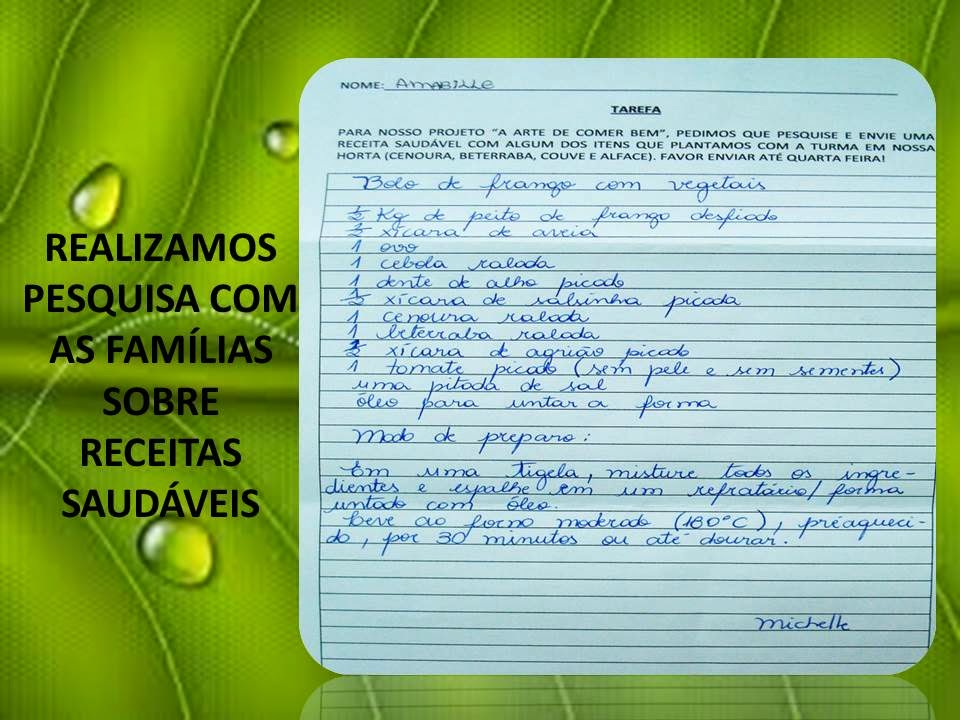 REALIZAMOS
PESQUISA COM
AS FAMÍLIAS
SOBRE
RECEITAS
SAUDÁVEIS
NOME: AMABILLE
TAREFA
PARA NOSSO PROJETO "A ARTE DE COMER BEM", PEDIMOS QUE PESQUISE E ENVIE UMA
RECEITA SAUDÁVEL COM ALGUM DOS ITENS QUE PLANTAMOS COM A TURMA EM NOSSA
HORTA (CENOURA, BETERRABA, COUVE E ALFACE). FAVOR ENVIAR ATÉ QUARTA FEIRA!
Bolo de frango com vegetais
½ Kg de peito de frango desfiado
xícara de aveia
1 ovo
1 cebola ralada
1 dente de alho picado
½ xícara de salsinha picada
1 cenoura ralada
1 beterraba ralada
xícara de agrião picado
1 tomate picado (sem pele e sem sementes)
uma pitada de sal
óleo para untar a forma
Modo de preparo:
Em uma tigela, misture todos os ingre-
dientes e espalhe em um refratário/forma
untado com óleo.
Leve ao forno moderado (180°C), préaqueci-
do, por 30 minutos ou até dourar.
Michelle